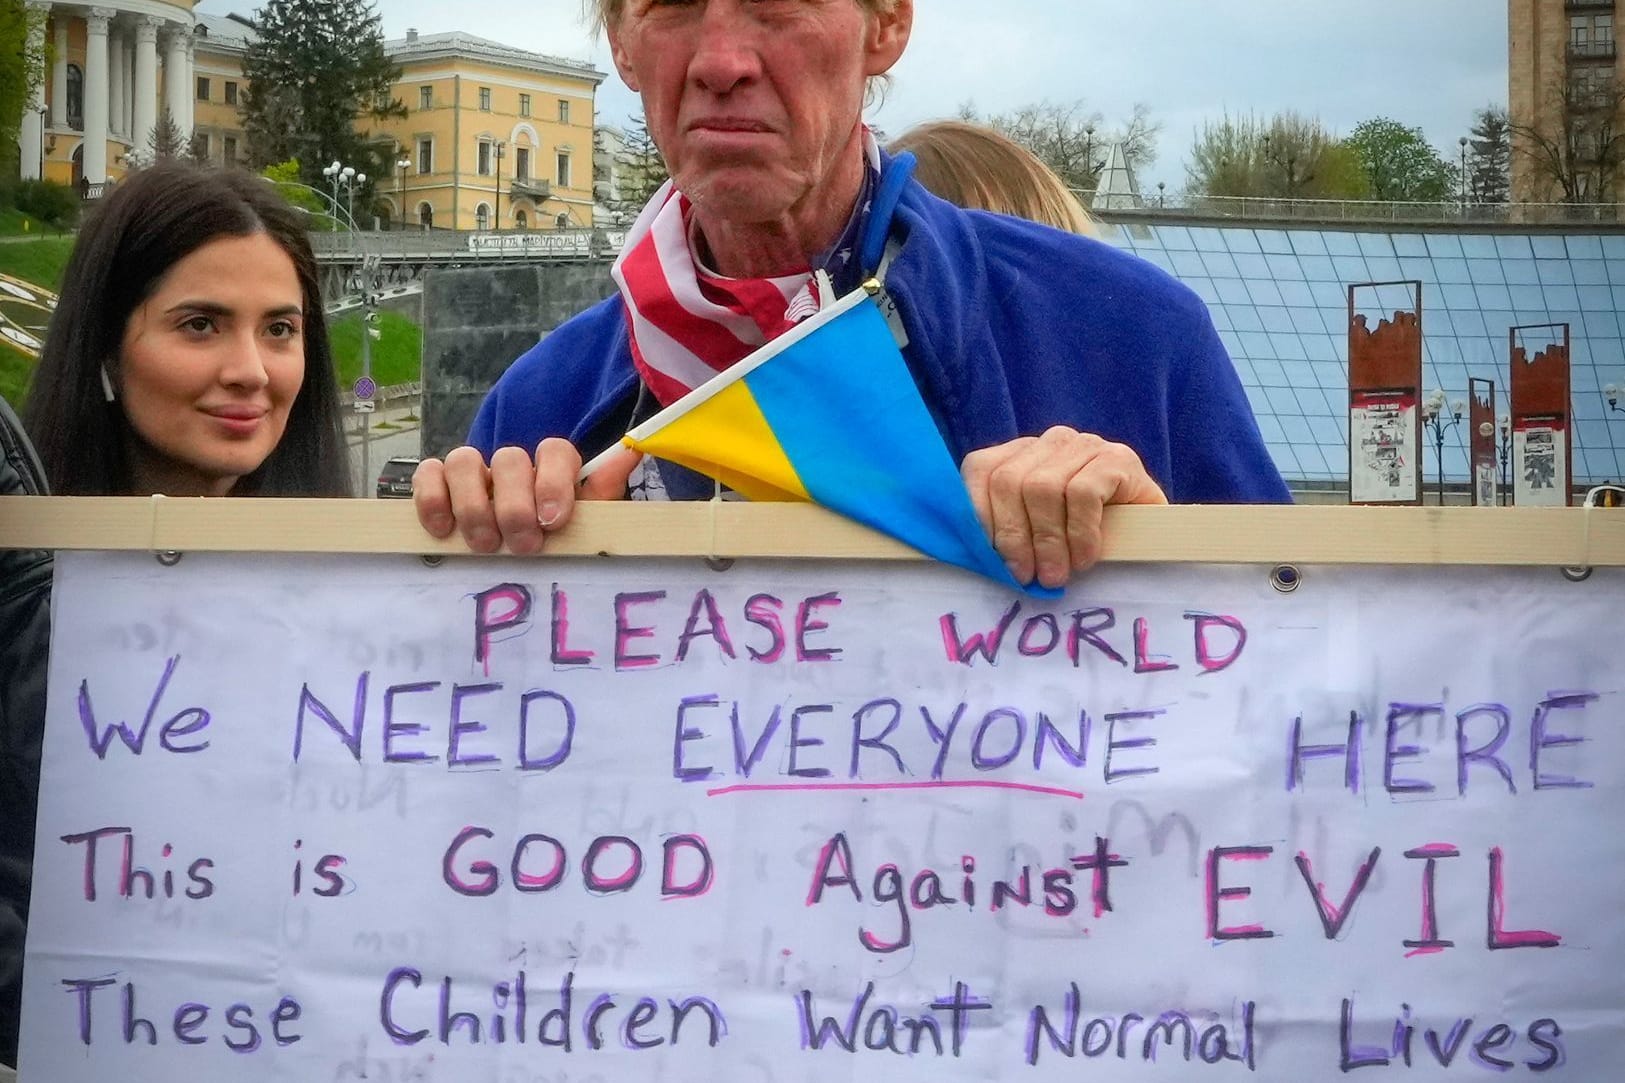 PLEASE WORLD
We NEED EVERYONE HERE
This is GOOD Against EVIL
These Children Want Normal Lives